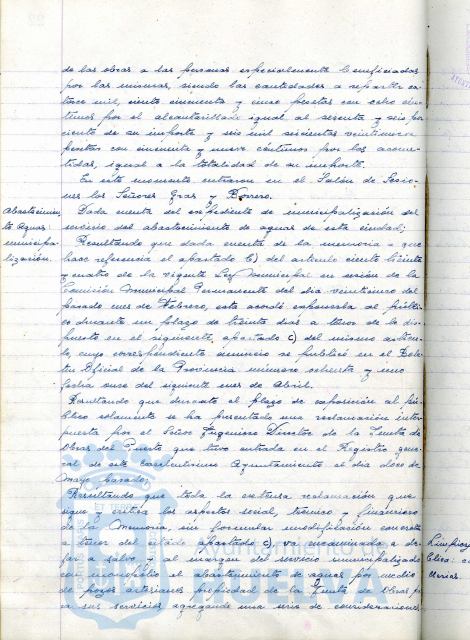 de las obras a las personas especialmente beneficiadas
por las mismas, siendo las cantidades a repartir ca-
torce mil, ciento cincuenta y cinco pesetas con ocho cén-
timos por el alcantarillado igual al sesenta y seis por
ciento de su importe y seis mil seiscientas veintinueve
pesetas con cincuenta y nueve céntimos por las acome-
tidas, igual a la totalidad de su importe.
En este momento entraron en el Salón de Sesio-
nes los Señores Gras y Borrero.
Abastecimien-
to Aguas
municipa-
lización.
Dada cuenta del expediente de municipalización del
servicio del abastecimiento de aguas de esta ciudad;
Resultando que dada cuenta de la memoria a que
hace referencia el apartado b) del artículo ciento sesenta
y cuatro de la vigente Ley Municipal en sesión de la
Comisión Municipal Permanente del día veinticinco del
pasado mes de Febrero, esta acordó exponerla al públi-
co durante un plazo de treinta días a tenor de lo dis-
puesto en el siguiente apartado c) del mismo artícu-
lo, cuyo correspondiente anuncio se publicó en el Bole-
tín Oficial de la Provincia número ochenta y uno
fecha once del siguiente mes de Abril.
Resultando que durante el plazo de exposición al pú-
blico solamente se ha presentado una reclamación inter-
puesta por el Señor Ingeniero Director de la Junta de
Obras del Puerto que tuvo entrada en el Registro gene-
ral de este Excelentísimo Ayuntamiento el día doce de
Mayo pasado;
Resultando que toda la extensa reclamación que
sigue y critica los aspectos social, técnico y financiero
de la Memoria, sin formular modificación concreta
a tenor del citado apartado c), va encaminada a de-
jar a salvo y al margen del servicio municipalizado
con monopolio el abastecimiento de aguas por medio
de pozos artesianos propiedad de la Junta de Obras p
a sus servicios agregando una serie de consideraciones
Limpieza
Ayuntamiento de
HUELVA